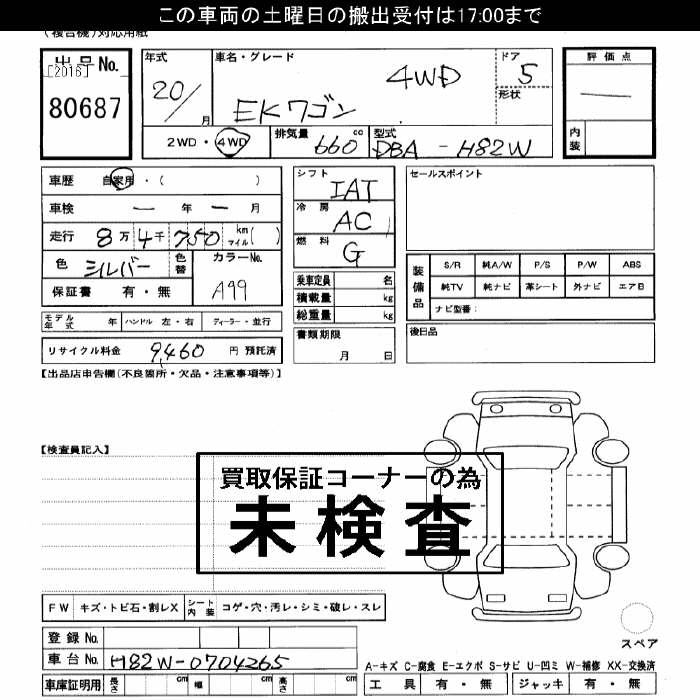 この車両の土曜日の搬出受付は17:00まで
(複合機)対応用紙
出品No.
[2016]
80687
年式
20/
月
車名・グレード
4WD
EKワゴン
ドア
5
形状
評価点
内装
2WD・4WD
排気量
660
cc
型式
DBA - H82W
車歴 自家用・( )
車検 ー 年 ー 月
走行 8万 4千 750 km マイル( )
色 シルバー 色替
カラーNo.
A99
保証書 有・無
モデル年式 年 ハンドル 左・右 ディーラー・並行
リサイクル料金 9,460 円 預託済
シフト
IAT
冷房
AC
燃料
G
乗車定員 名
積載量 kg
総重量 kg
書類期限
月 日
セールスポイント
装備品
S/R 純A/W P/S P/W ABS
純TV 純ナビ 革シート 外ナビ エアB
ナビ型番:
後日品
【出品店申告欄(不良箇所・欠品・注意事項等)】
【検査員記入】
買取保証コーナーの為
未検査
FW キズ・トビ石・割レX シート内装 コゲ・穴・汚レ・シミ・破レ・スレ
登録No.
車台No. H82W-0704265
車庫証明用 長さ cm 幅 cm 高さ cm
スペア
A-キズ C-腐食 E-エクボ S-サビ U-凹ミ W-補修 XX-交換済
工具 有・無 ジャッキ 有・無